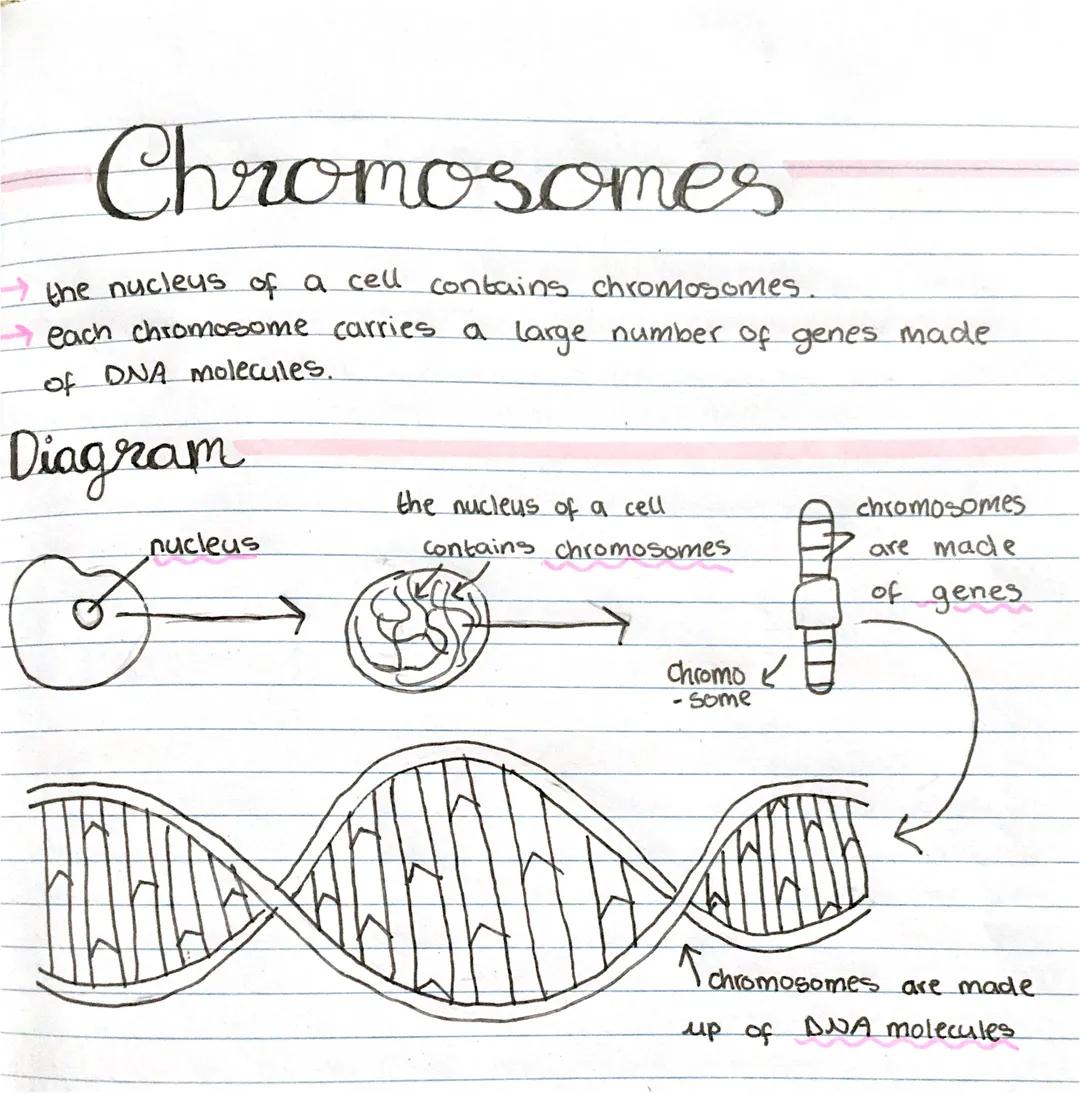 Chromosomes
→ the nucleus of a cell contains chromosomes.
→ each chromosome carries a large number of genes made
of DNA molecules.
Diagram
nucleus
the nucleus of a cell
contains chromosomes
chromosomes
are made
of genes
Chromo
-some
chromosomes are made
up of DNA molecules